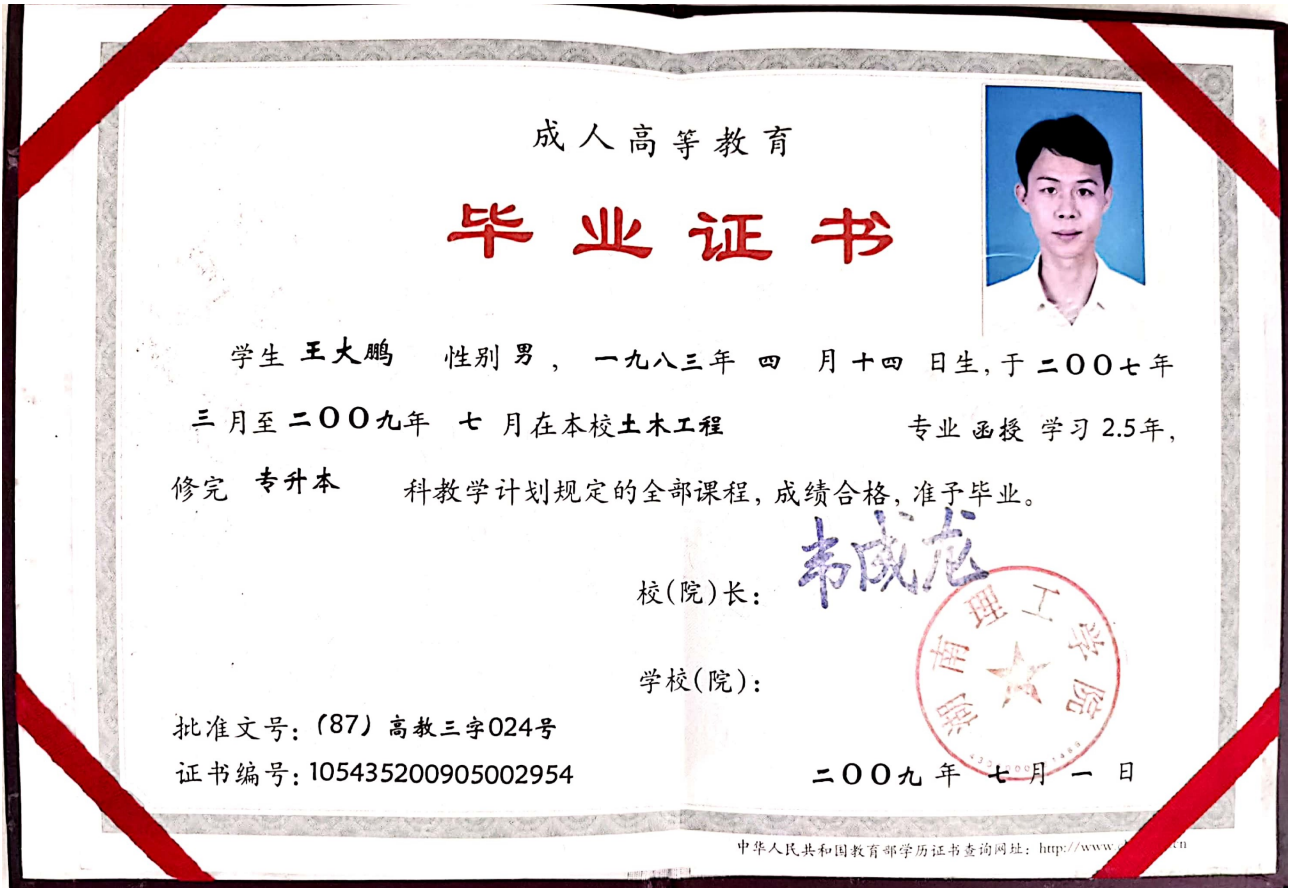 成人高等教育
毕业证书
学生 王大鹏 性别 男 , 一九八三年 四 月 十四 日生, 于 二〇〇七 年
三 月至 二〇〇九年 七 月在本校土木工程 专业 函授 学习 2.5年,
修完 专升本 科教学计划规定的全部课程, 成绩合格, 准予毕业。
校(院)长: 韦成龙
学校(院):
湖南理工学院
批准文号: (87) 高教三字024号
证书编号: 105435200905002954
二〇〇九 年 七 月 一 日
中华人民共和国教育部学历证书查询网址: http://www.